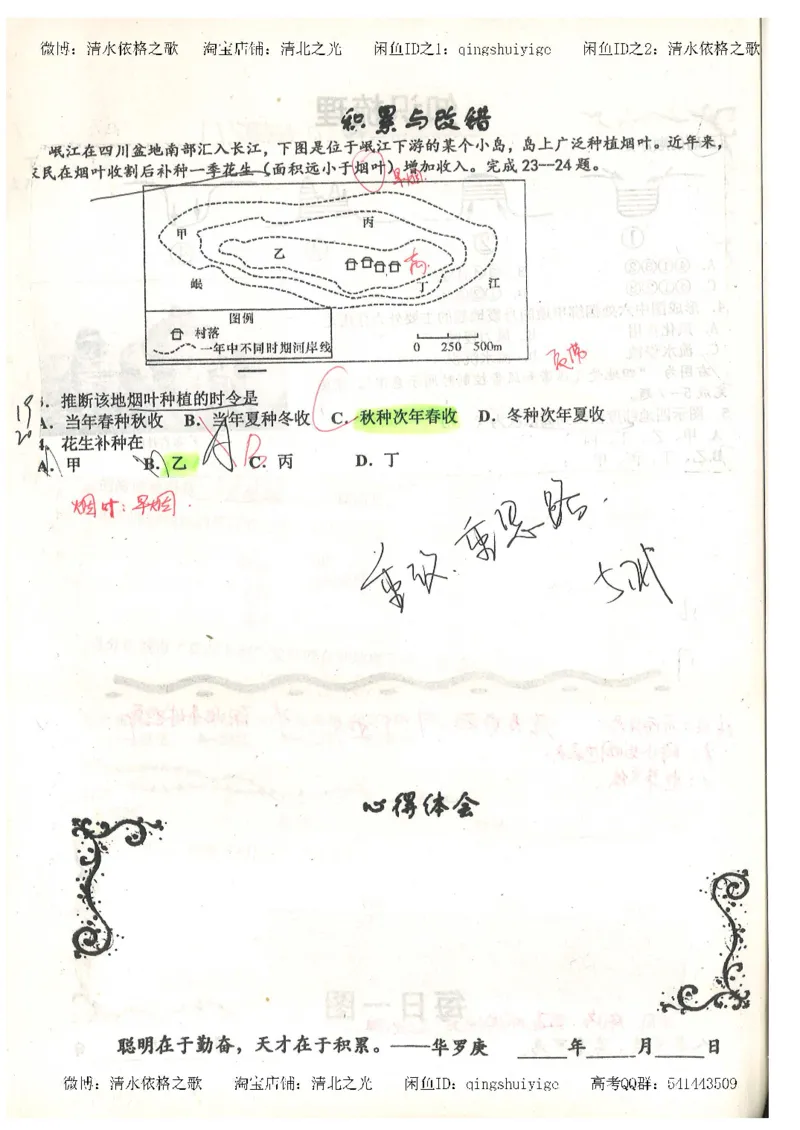 微博：清水依格之歌 淘宝店铺：清北之光 闲鱼ID之1：qingshuiyige 闲鱼ID之2：清水依格之歌
积累与改错
岷江在四川盆地南部汇入长江，下图是位于岷江下游的某个小岛，岛上广泛种植烟叶。近年来，
民在烟叶收割后补种一季花生（面积远小于烟叶）增加收入。完成 23--24 题。
旱烟
甲
丙
乙
高
岷
丁
江
图例
村落
一年中不同时期河岸线
0 250 500m
19
推断该地烟叶种植的时令是
A．当年春种秋收 B．当年夏种冬收 C．秋种次年春收 D．冬种次年夏收
20
花生补种在
A．甲 B．乙 C．丙 D．丁
B
烟叶：旱烟
重思路．
心得体会
聪明在于勤奋，天才在于积累。——华罗庚 ____年____月____日
微博：清水依格之歌 淘宝店铺：清北之光 闲鱼ID：qingshuiyige 高考QQ群：541443509